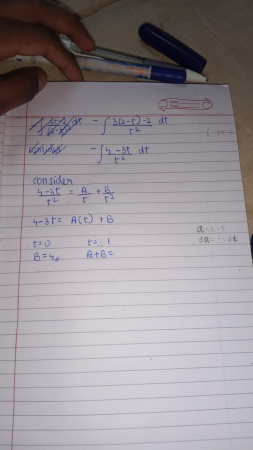 - ∫ 3(2-t)-2 / t² dt
- ∫ 4-3t / t² dt
consider
4-3t / t² = A/t + B/t²
4-3t = A(t) + B
t=0 t=1
B=4 A+B=